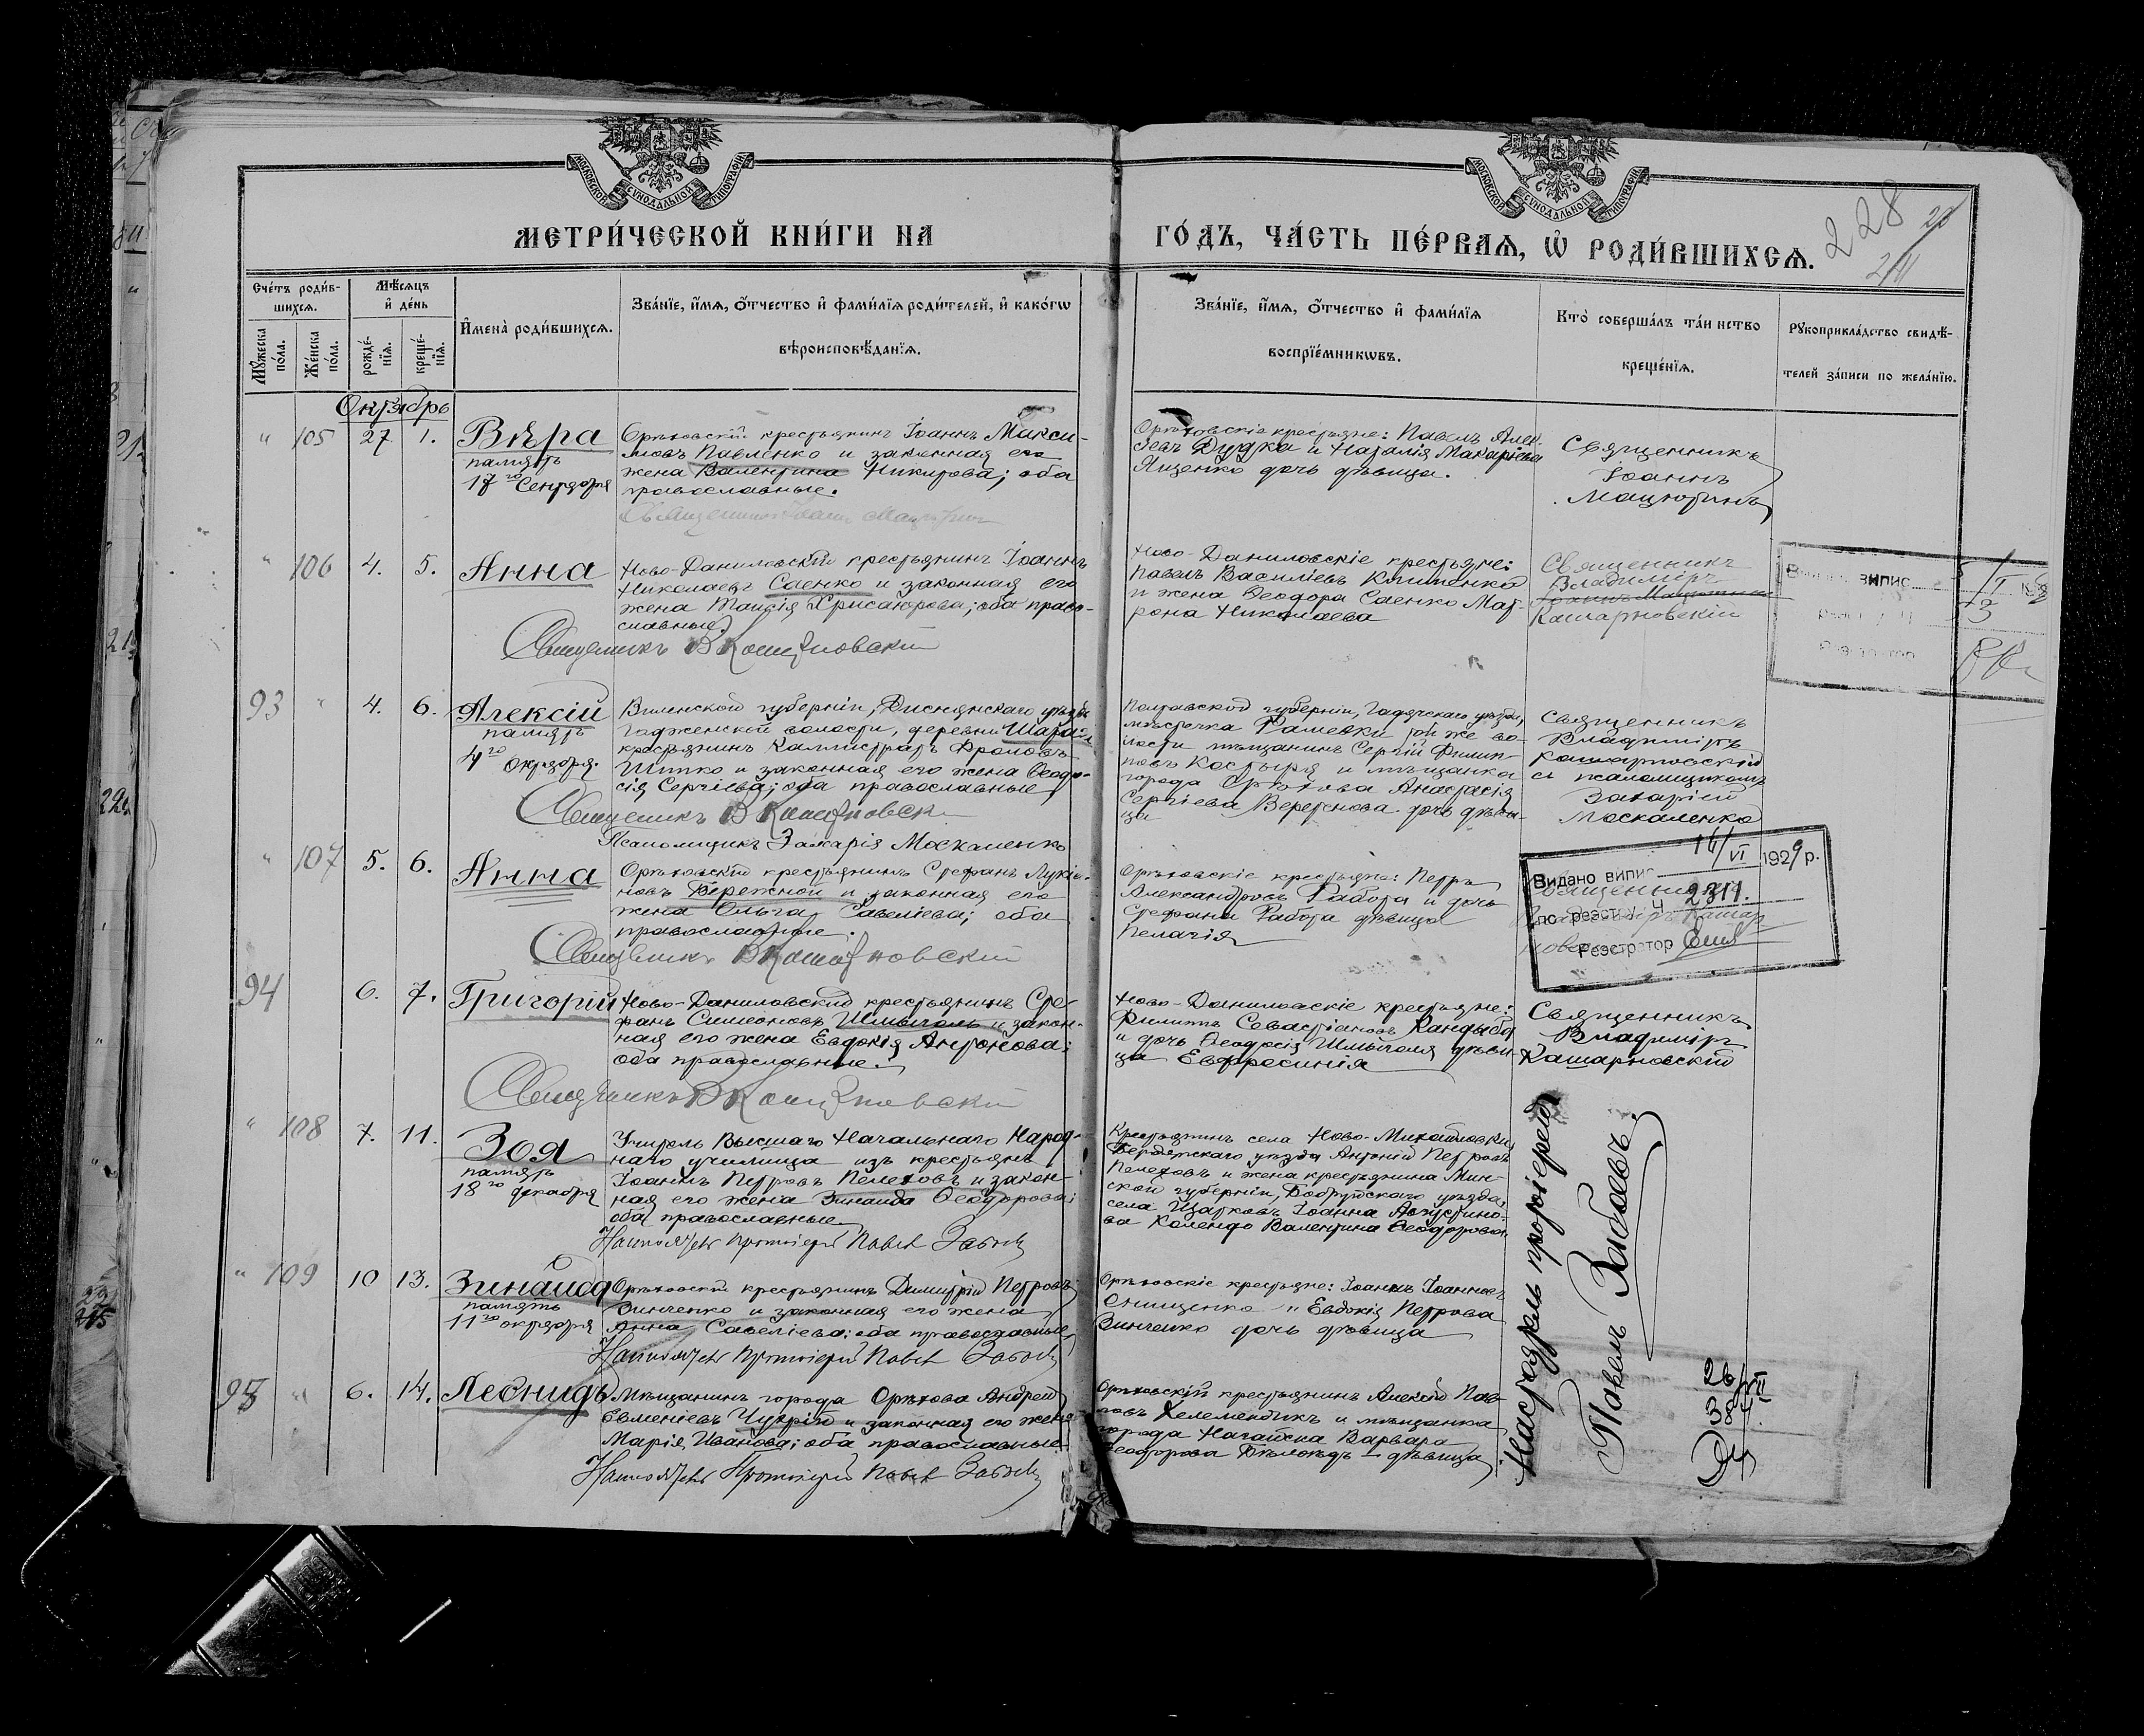 МОСКОВСКОЙ СѴНОДАЛЬНОЙ ТИПОГРАФІИ
МОСКОВСКОЙ СѴНОДАЛЬНОЙ ТИПОГРАФІИ
МЕТРИ́ЧЕСКОЙ КНИ́ГИ НА
ГО́ДЪ, ЧА́СТЬ ПЕ́РВАЯ, Ѡ РОДИ́ВШИХСЯ.
228
Сче́тъ роди́в-
шихся.
Мѣ́сяцъ
и҆ де́нь
Мꙋ́жеска
по́ла.
Же́нска
по́ла.
рожде́-
нїѧ.
креще́-
нїѧ.
И҆мена̀ роди́вшихся.
Зва́нїе, и҆́мѧ, ѻ҆́тчество и҆ фами́лїѧ роди́телей, и҆ како́гѡ
вѣроисповѣ́данїѧ.
Зва́нїе, и҆́мѧ, ѻ҆́тчество и҆ фами́лїѧ
воспрїе́мникѡвъ.
Кто̀ соверша́лъ та́инство
креще́нїѧ.
Рꙋкоприкла́дство свидѣ́-
телей за́писи по жела́нїю.
Октябрь
" 105 27 1. Вѣра
память
17го Сентября
Орѣховскій крестьянинъ Іоаннъ Макси-
мовъ Павленко и законная его
жена Валентина Никитова; оба
православные.
Орѣховскіе крестьяне: Павелъ Алек-
іевъ Дудка и Наталія Макаріева
Яценко дочь дѣвица.
Священникъ
Іоаннъ
Мацютинъ
" 106 4. 5. Анна
Ново-Даниловскій крестьянинъ Іоаннъ
Николаевъ Саенко и законная его
жена Таисія Хрисанфова; оба право-
славные.
Священникъ В Кошарновскій
Ново-Даниловскіе крестьяне:
Павелъ Василіевъ Клименко
и жена Ѳеодора Саенко Мат-
рона Николаева
Священникъ
Владиміръ
Іоаннъ Мацютинъ
Кашарновскій
93 " 4. 6. Алексій
память
4го Октября.
Виленской губерніи, Диснянскаго уѣзда
волости, деревни
крестьянинъ Каллистратъ Фроловъ
Шитко и законная его жена Ѳеодо-
сія Сергіева; оба православные
Священникъ В Кошарновск
Псаломщикъ Захарія Москаленко
Полтавской губерніи, Гадячскаго уѣзда,
мѣстечка Рашевки той же во-
лости мѣщанинъ Сергій Филип-
повъ Костыря и мѣщанка
города Орѣхова Анастасія
Сергіева Веретенова дочь дѣви-
ца
Священникъ
Владиміръ
Кашарновскій
съ псаломщикомъ
Захаріей
Москаленко
" 107 5. 6. Анна
Орѣховскій крестьянинъ Стефанъ Лукіа-
новъ Бережной и законная его
жена Ольга Савеліева; оба
православные.
Священникъ В Кошарновскій
Орѣховскіе крестьяне: Петръ
Александровъ Работа и дочь
Стефана Работа дѣвица
Пелагія
16/VI 1929 р.
Видано випис
по реєстру Ч 2311.
Реєстратор
94 6. 7. Григорій
Ново-Даниловскій крестьянинъ Сте-
фанъ Симеоновъ Шмыголь и закон-
ная его жена Евдокія Антонова;
оба православные.
Священникъ В Кошарновскій
Ново-Даниловскіе крестьяне:
Филиппъ Севастіановъ Кандыба
и дочь Ѳеодосія Шмыголя дѣви-
ца Евфросинія
Священникъ
Владиміръ
Кашарновскій
" 108 7. 11. Зоя
память
18го декабря
Учитель Высшаго Начальнаго Народ-
наго училища изъ крестьянъ
Іоаннъ Петровъ Пелеховъ и закон-
ная его жена Зинаида Ѳеодорова;
оба православные
Настоятель Протоіерей Павелъ
Крестьянинъ села Ново-Михайловки,
Бердянскаго уѣзда Антоній Петровъ
Пелеховъ и жена крестьянина Мин-
ской губерніи, Бобруйскаго уѣзда,
села Іоанна Августино-
ва Колендо Валентина Ѳеодорова
Настоятель протоіерей
Павелъ
" 109 10 13. Зинаида
память
11го октября
Орѣховскій крестьянинъ Димитрій Петровъ
Зинченко и законная его жена
Анна Савеліева; оба православные
Настоятель Протоіерей Павелъ
Орѣховскіе крестьяне: Іоаннъ Іоанновъ
Онищенко и Евдокія Петрова
Зинченко дочь дѣвица
95 " 6. 14. Леонидъ
Мѣщанинъ города Орѣхова Андрей
Евменіевъ Чухрій и законная его жена
Марія Иванова; оба православные
Настоятель Протоіерей Павелъ
Орѣховскій крестьянинъ Алексій Пав-
ловъ Келеменчикъ и мѣщанка
города Ногайска Варвара
Ѳеодорова дѣвица
26/VII
384.